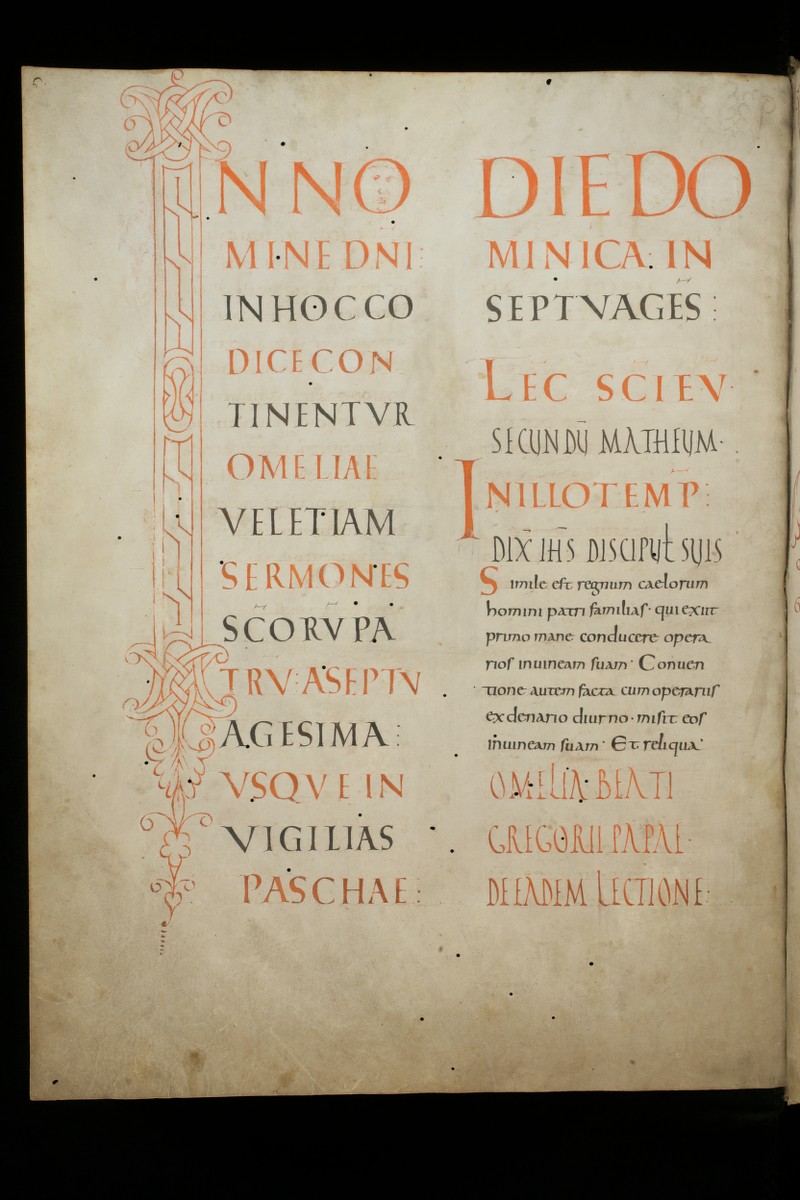 INNO
MINE DNI:
IN HOC CO
DICE CON
TINENTVR
OMELIAE
VEL ETIAM
SERMONES
SCORV PA
TRV: A SEPTV
AGESIMA:
VSQVE IN
VIGILIAS
PASCHAE:
DIE DO
MINICA: IN
SEPTVAGES:
LEC SCI EV
SECUNDU MATHEUM.
IN ILLO TEMP:
DIX IHS DISCIPUL SUIS
Simile est regnum caelorum
homini patri familias. qui exiit
primo mane conducere opera
rios in uineam suam. Conuen
tione autem facta cum operariis
ex denario diurno. misit eos
in uineam suam. Et reliqua.
OMELIA BEATI
GREGORII PAPAE.
DE EADEM LECTIONE: